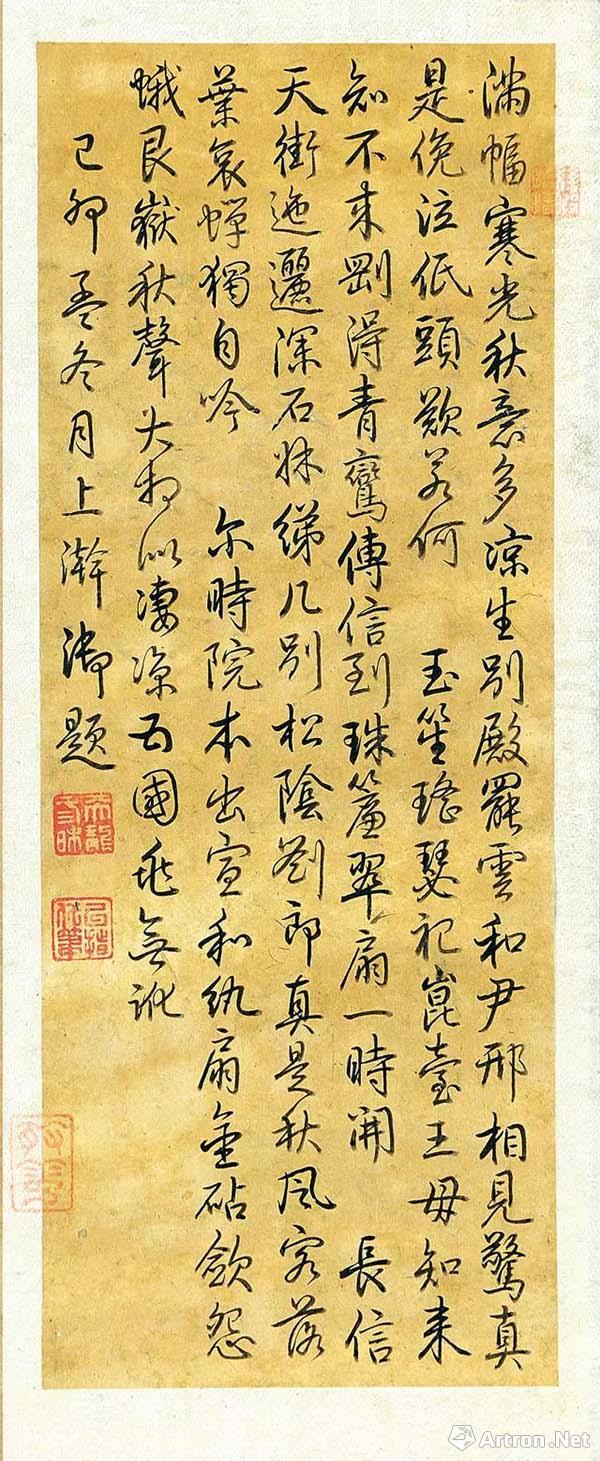 滿幅寒光秋意多涼生別殿罷雲和尹邢相見驚真
是俛泣低頭歎若何 玉笙瑤瑟祀崑臺王母知来
知不来剛得青鸞傳信到珠簾翠扇一時開 長信
天街迤邐深石牀綈几別松陰劉郎真是秋風客落
葉哀蟬獨自吟 尔時院本出宣和紈扇金砧斂怨
蛾艮嶽秋聲大相似淒涼五國兆無訛
己卯孟冬月上澣御題
Artron.Net